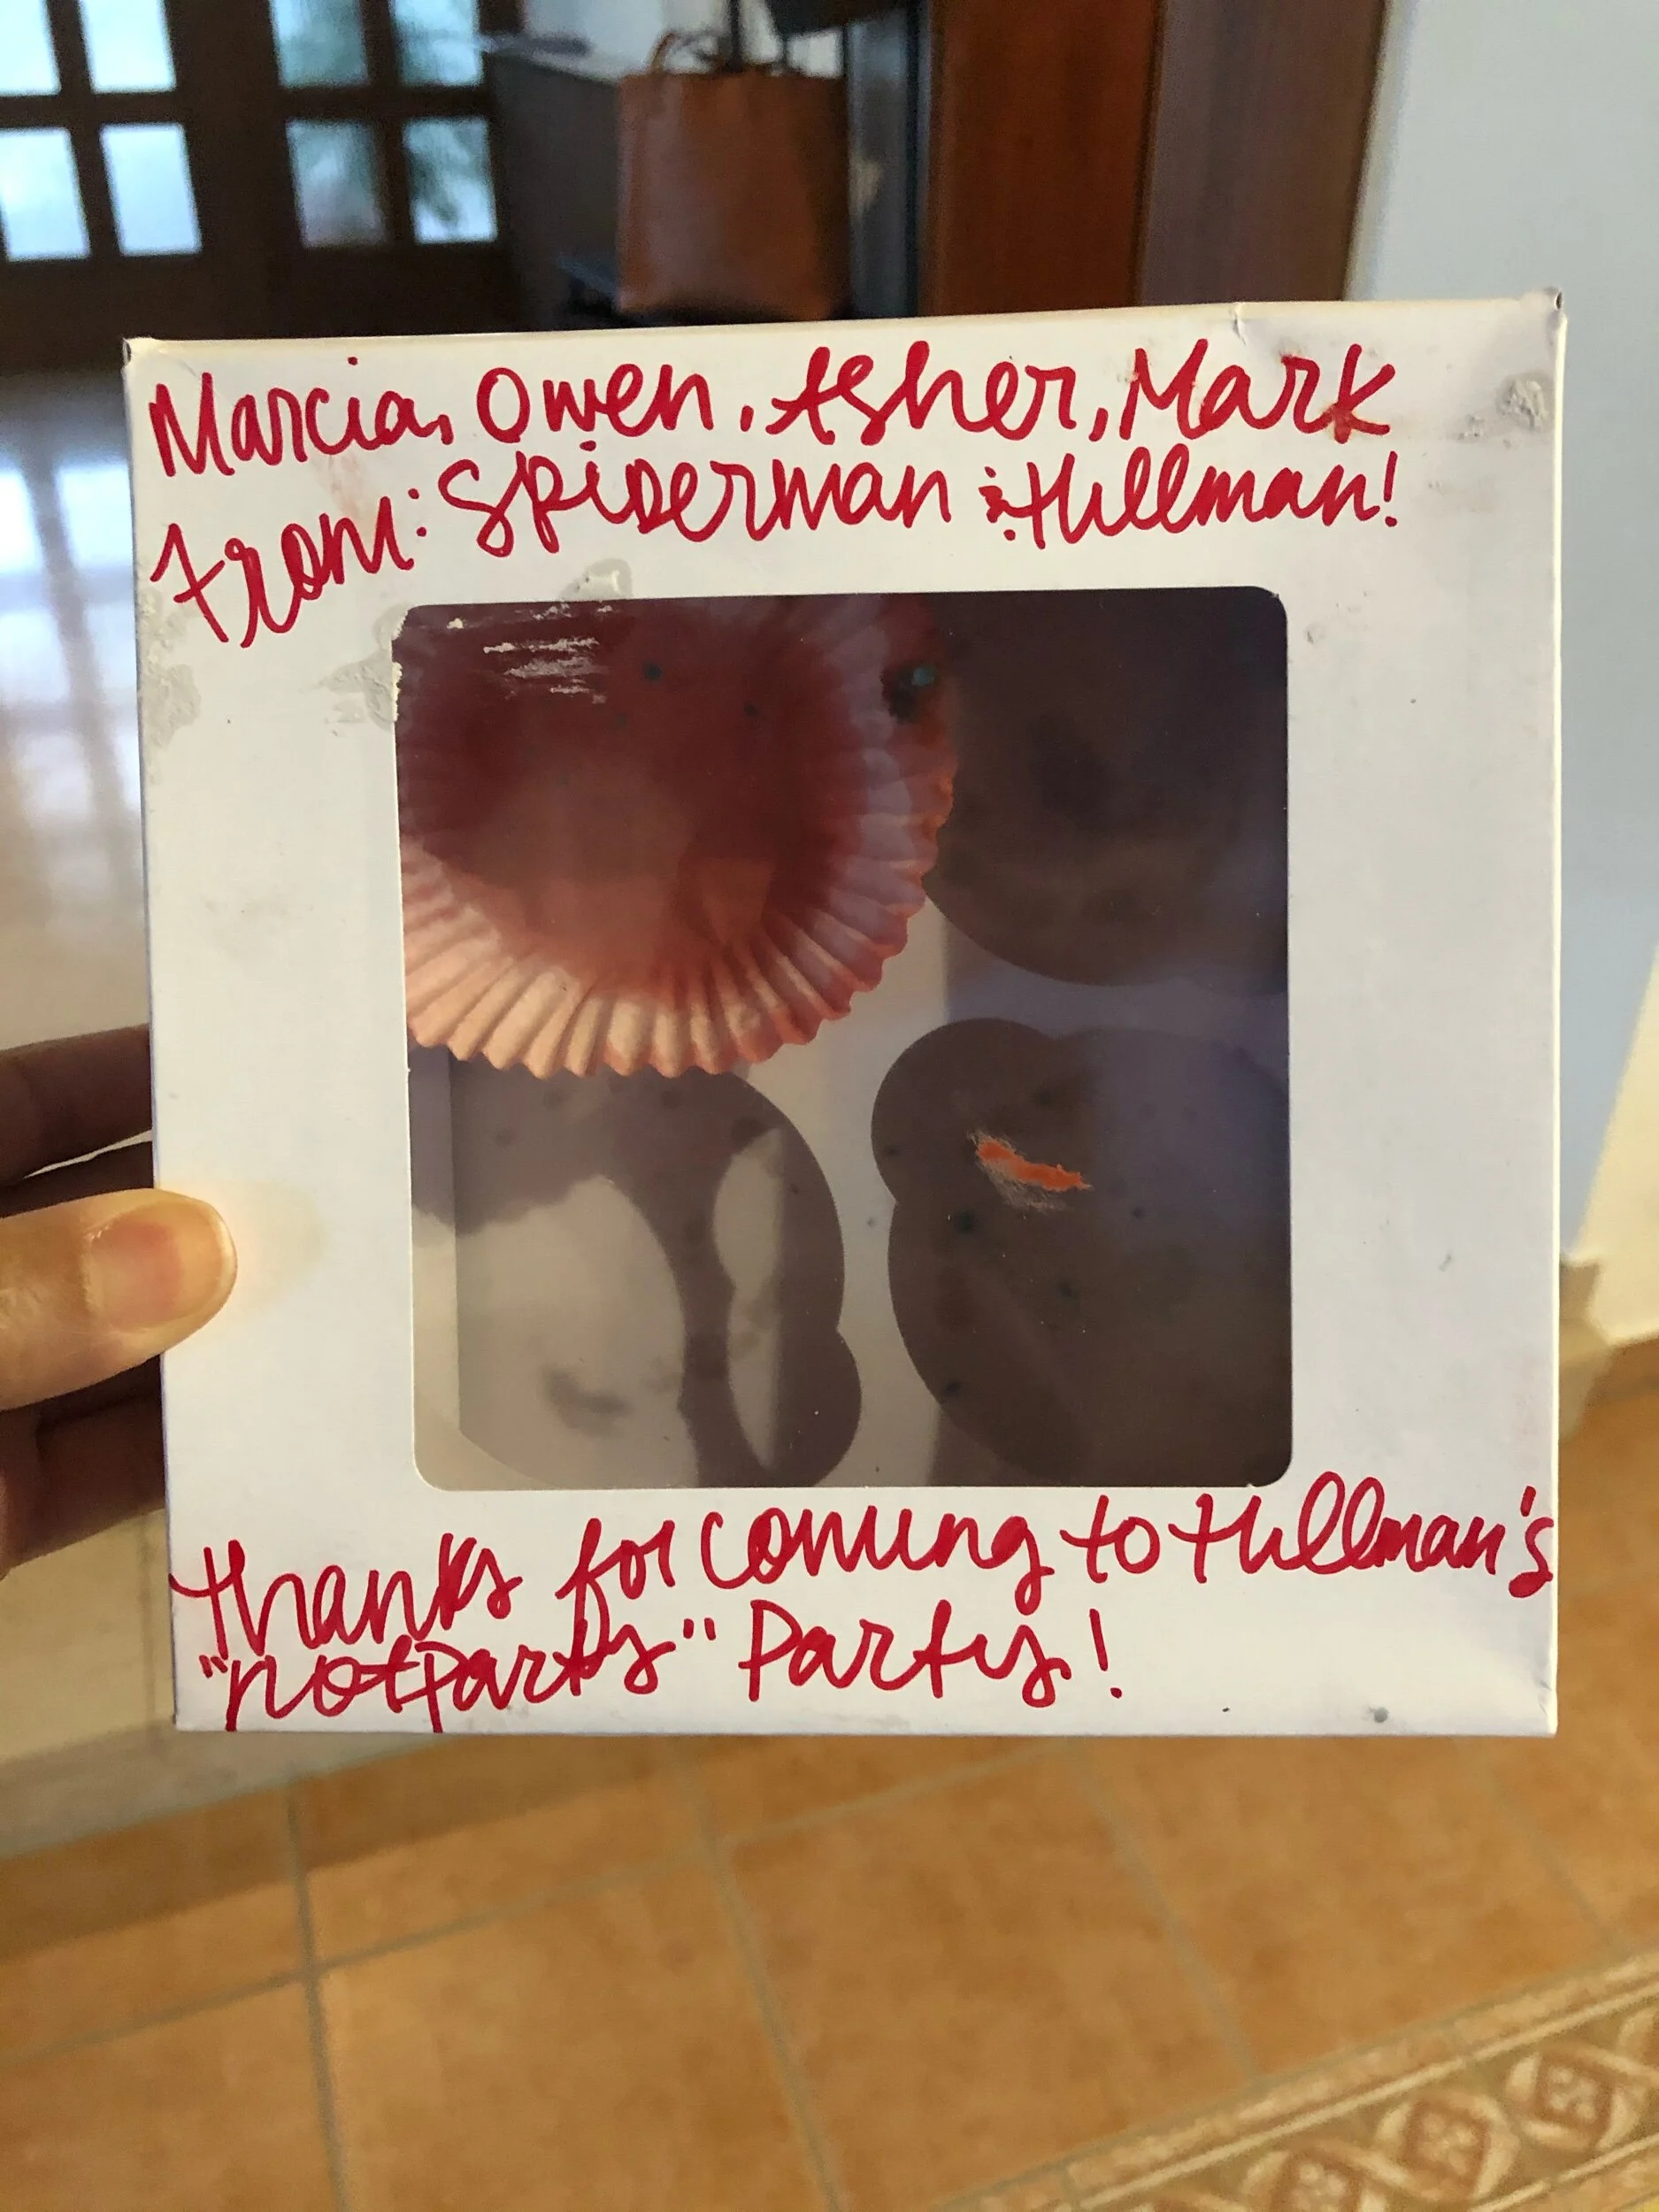 Marcia, Owen, Asher, Mark
From: Spiderman & Hillman!
Thanks for coming to Hillman's
"not party" Party!